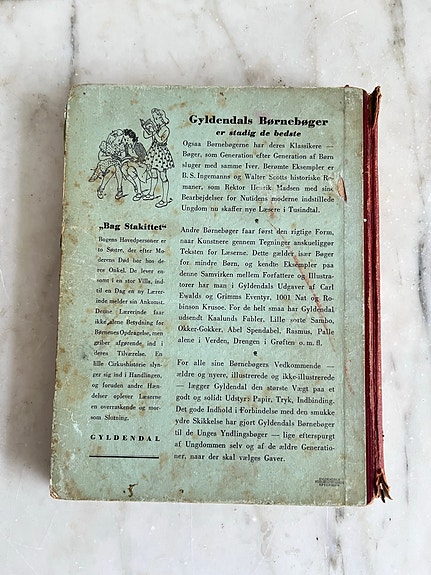 Gyldendals Børnebøger
er stadig de bedste
Ogsaa Børnebøgerne har deres Klassikere —
Bøger, som Generation efter Generation af Børn
sluger med samme Iver. Berømte Eksempler er
B. S. Ingemanns og Walter Scotts historiske Ro-
maner, som Rektor Henrik Madsen med sine
Bearbejdelser for Nutidens moderne indstillede
Ungdom nu skaffer nye Læsere i Tusindtal.
Andre Børnebøger faar først den rigtige Form,
naar Kunstnere gennem Tegninger anskueliggør
Teksten for Læserne. Dette gælder især Bøger
for mindre Børn, og kendte Eksempler paa
denne Samvirken mellem Forfattere og Illustra-
torer har man i Gyldendals Udgaver af Carl
Ewalds og Grimms Eventyr, 1001 Nat og Ro-
binson Krusoe. For de helt smaa har Gyldendal
udsendt Kaalunds Fabler, Lille sorte Sambo,
Okker-Gokker, Abel Spendabel, Rasmus, Palle
alene i Verden, Drengen i Grøften o. m. fl.
For alle sine Børnebøgers Vedkommende —
ældre og nyere, illustrerede og ikke-illustrerede
— lægger Gyldendal den største Vægt paa et
godt og solidt Udstyr: Papir, Tryk, Indbinding.
Det gode Indhold i Forbindelse med den smukke
ydre Skikkelse har gjort Gyldendals Børnebøger
til de Unges Yndlingsbøger — lige efterspurgt
af Ungdommen selv og af de ældre Generatio-
ner, naar der skal vælges Gaver.
„Bag Stakittet“
Bogens Hovedpersoner er
to Søstre, der efter Mo-
derens Død bor hos de-
res Onkel. De lever en-
somt i en stor Villa, ind-
til en Dag en ny Lærer-
inde melder sin Ankomst.
Denne Lærerinde faar
ikke alene Betydning for
Børnenes Opdragelse, men
griber afgørende ind i
deres Tilværelse. En
lille Cirkushistorie slyn-
ger sig ind i Handlingen,
og foruden andre Hæn-
delser oplever Læserne
en overraskende og mor-
som Slutning.
GYLDENDAL